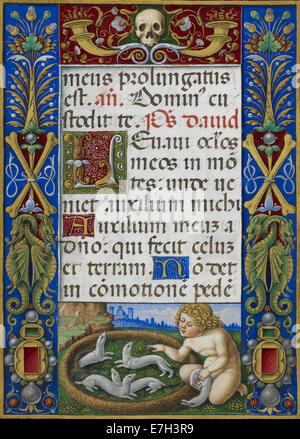 meus prolungatus
est. añ. Dominꝰ cu
stodit te. pos david
Levavi oc̄los
meos in mō
tes. unde ve
niet auxilium michi
Auxilium meuz a
dño. qui fecit celuz
et terram. Nō det
in cōmotionē pedē
E7H3R9